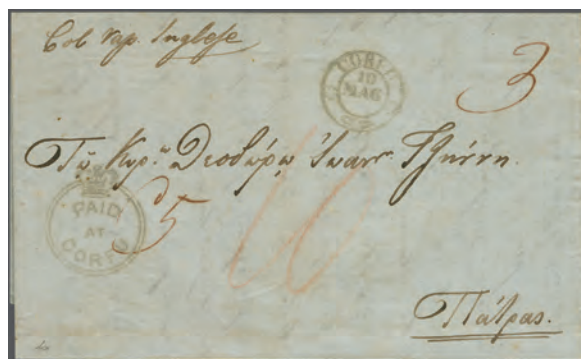 Col Vap. Inglese
CORFU
10
MAG
3
Τῷ Κυρ.ῳ Θεοδώρῳ Ἰωάνν.
PAID
AT
CORFU
5
10
Πάτρας.